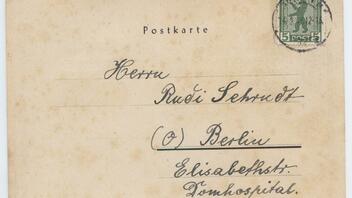 Postkarte
5 5
Herrn
Rudi Schrudt
(O) Berlin
Elisabethstr.
Domhospital.